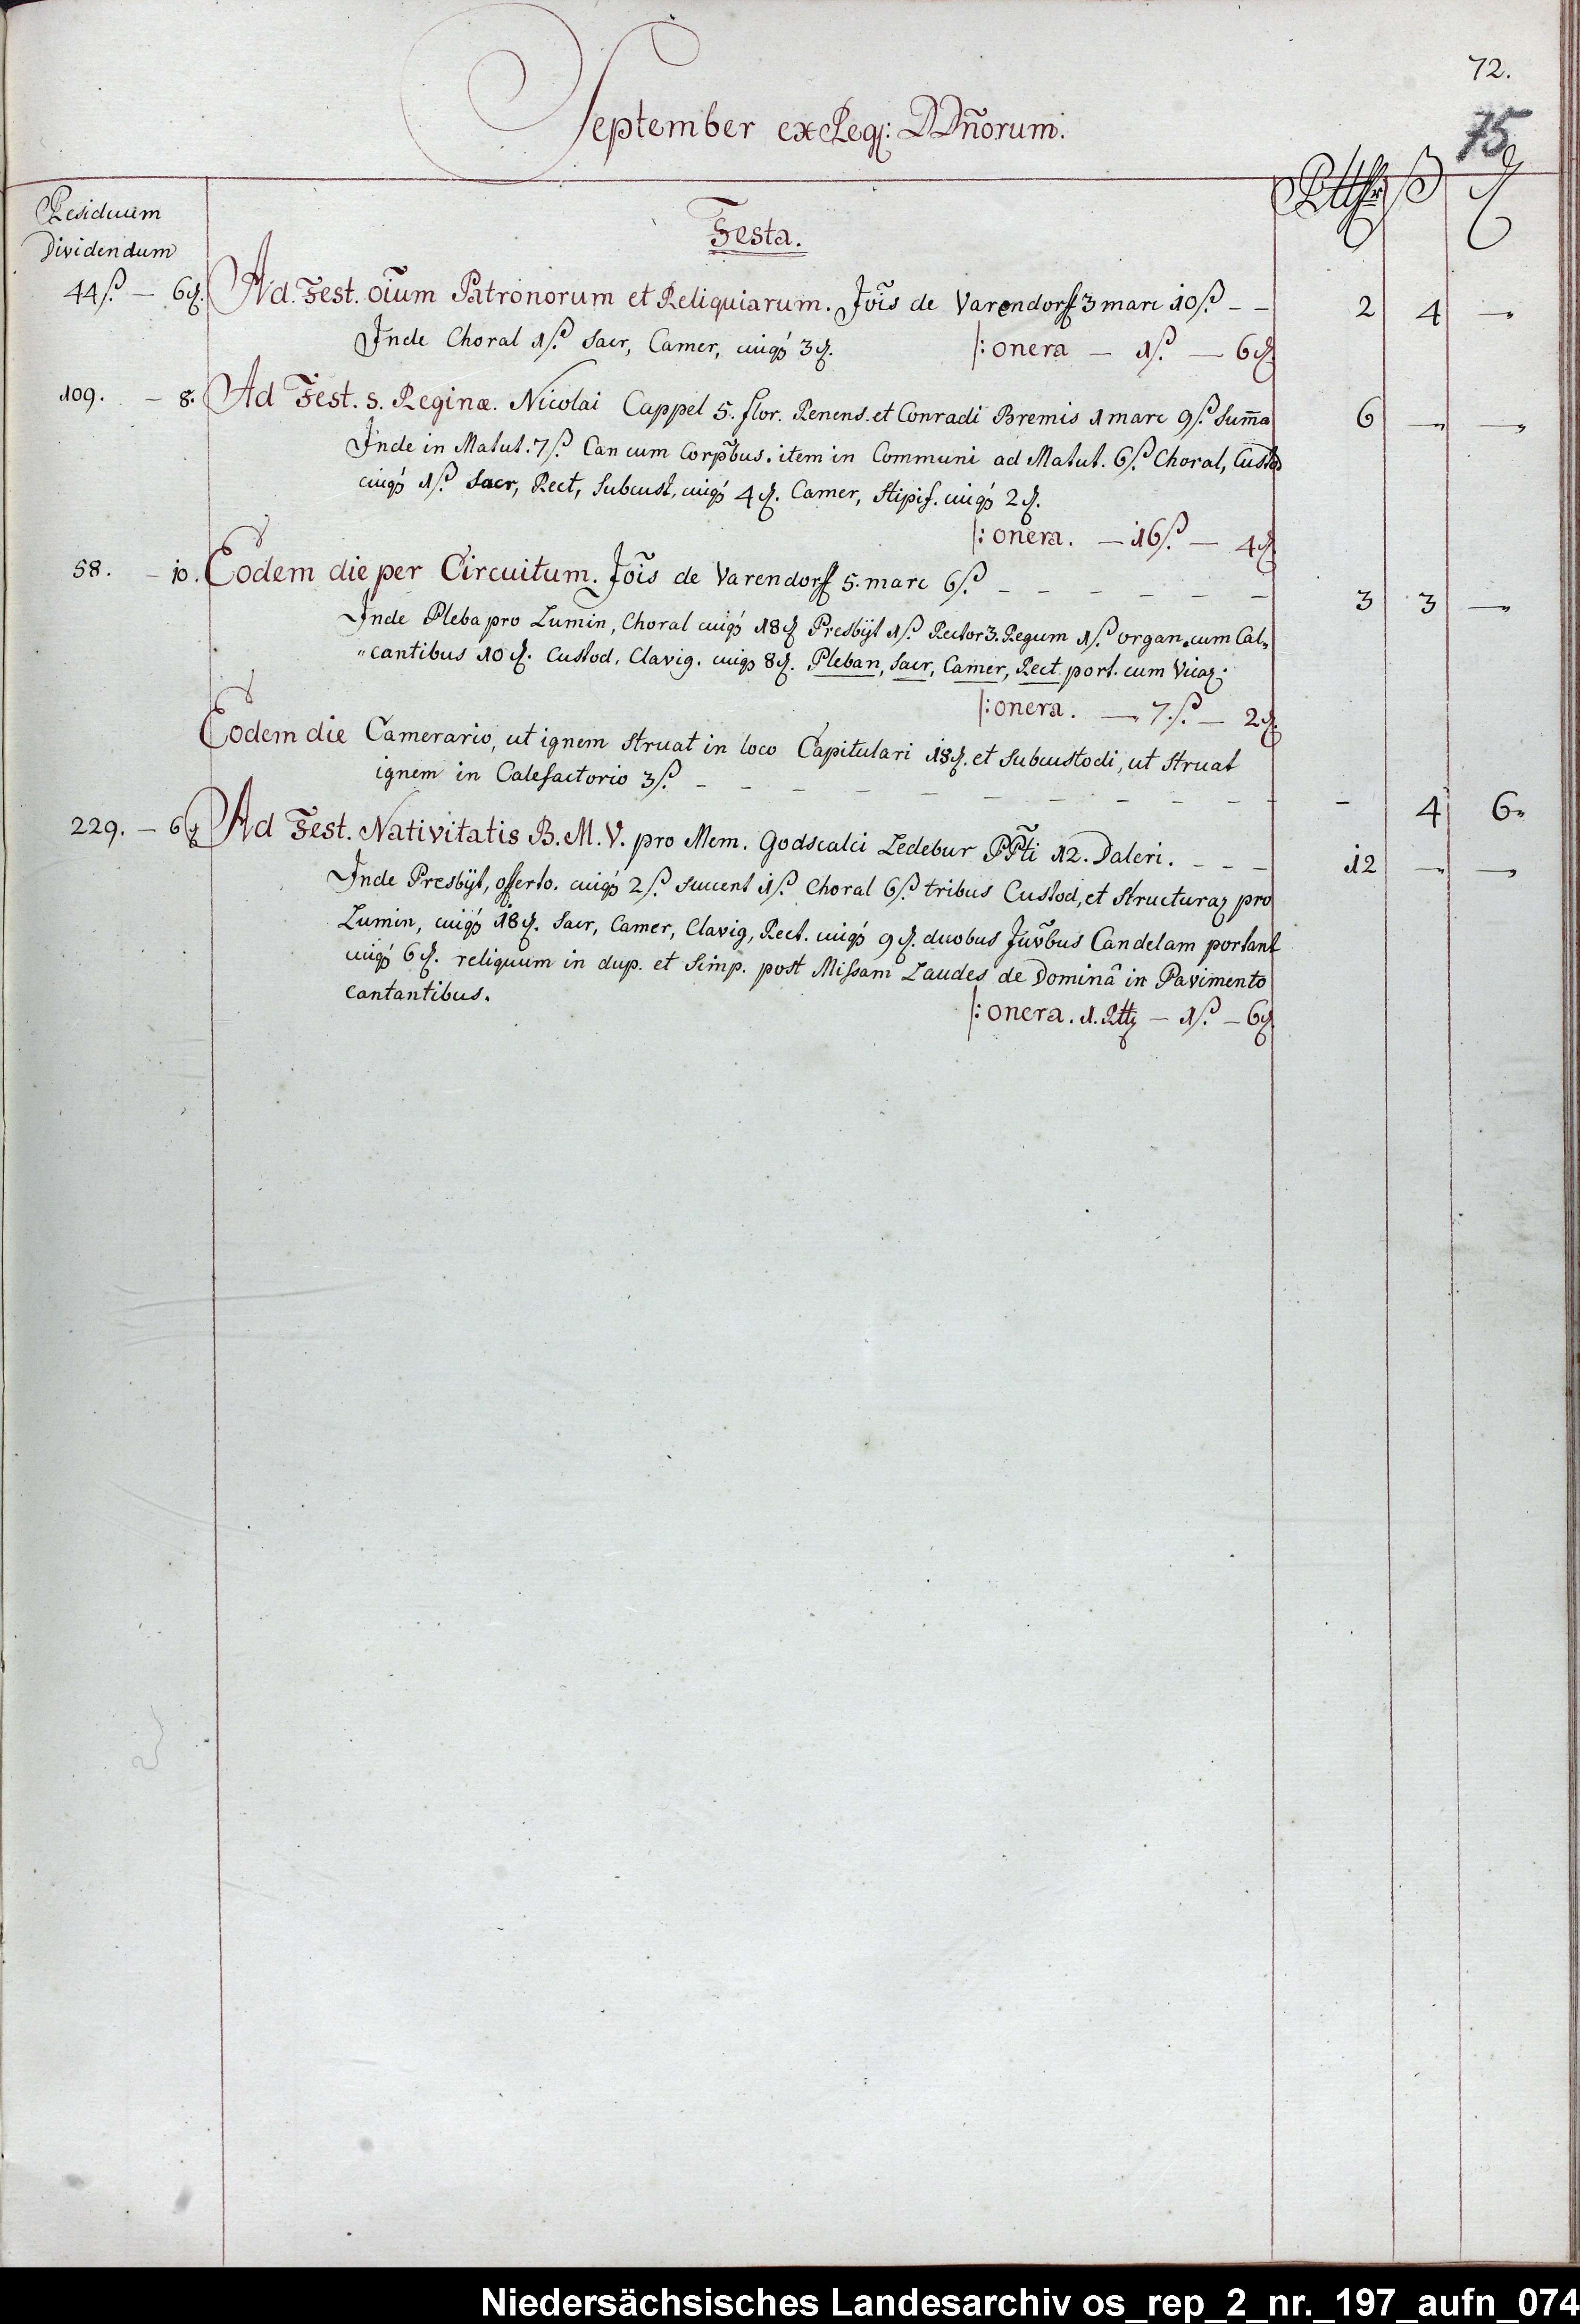 72.
75
September ex Reg: DDn̄orum.
Residuum
Dividendum
Rtthlr ß ₰
Festa.
44ß. — 6₰. Ad. Fest. oīum Patronorum et Reliquiarum. Jōis de Varendorff 3 marc 10ß. – – 2 4 —
Inde Choral 1ß. Sacr, Camer, cuiqȝ 3₰. |: onera — 1ß. — 6₰
109. — 8. Ad Fest. S. Reginæ. Nicolai Cappel 5. flor. Renens. et Conradi Bremis 1 marc 9ß. Sum̄a 6 — —
Inde in Matut. 7ß. Can cum Corp̄bus. item in Communi ad Matut. 6ß. Choral, Custod
cuiqȝ 1ß. Sacr, Rect, Subcust, cuiqȝ 4₰. Camer, Stipif. cuiqȝ 2₰.
|: onera. — 16ß. — 4₰
58. — 10. Eodem die per Circuitum. Jōis de Varendorff 5. marc 6ß. – – – – – – 3 3 —
Inde Pleba pro Lumin, Choral cuiqȝ 18₰ Presbÿt 1ß. Rector 3. Regum 1ß. organ. cum Cal„
„cantibus 10₰. Custod, Clavig. cuiqȝ 8₰. Pleban, Sacr, Camer, Rect. port. cum Vicaȝ.
|: onera. — 7.ß. — 2₰.
Eodem die Camerario, ut ignem struat in loco Capitulari 18₰. et Subcustodi, ut struat
ignem in Calefactorio 3ß. – – – – – – – – – – – 4 6„
229. — 6₰ Ad Fest. Nativitatis B. M. V. pro Mem. Godscalci Ledebur PP̄ti 12. Daleri. – – – 12 — —
Inde Presbÿt, offerto. cuiqȝ 2ß. Succent 1ß. Choral 6ß. tribus Custod, et Structuraȝ pro
Lumin, cuiqȝ 18₰. Sacr, Camer, Clavig, Rect. cuiqȝ 9₰. duobus Juv̄bus Candelam portant
cuiqȝ 6₰. reliquum in dup. et Simp. post Missam Laudes de Dominâ in Pavimento
cantantibus.
|: onera. 1. Rttȝ — 1ß. — 6₰.
Niedersächsisches Landesarchiv os_rep_2_nr._197_aufn_074